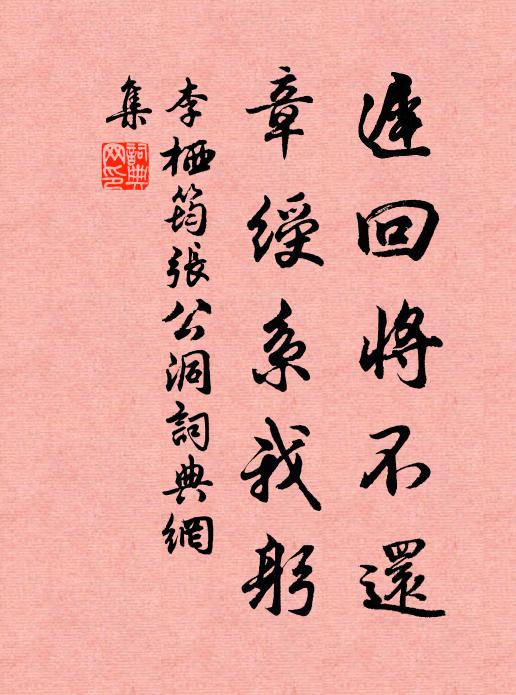 遲回將不還
章綬系我躬
李栖筠張公洞詞典網
集
詞典网印